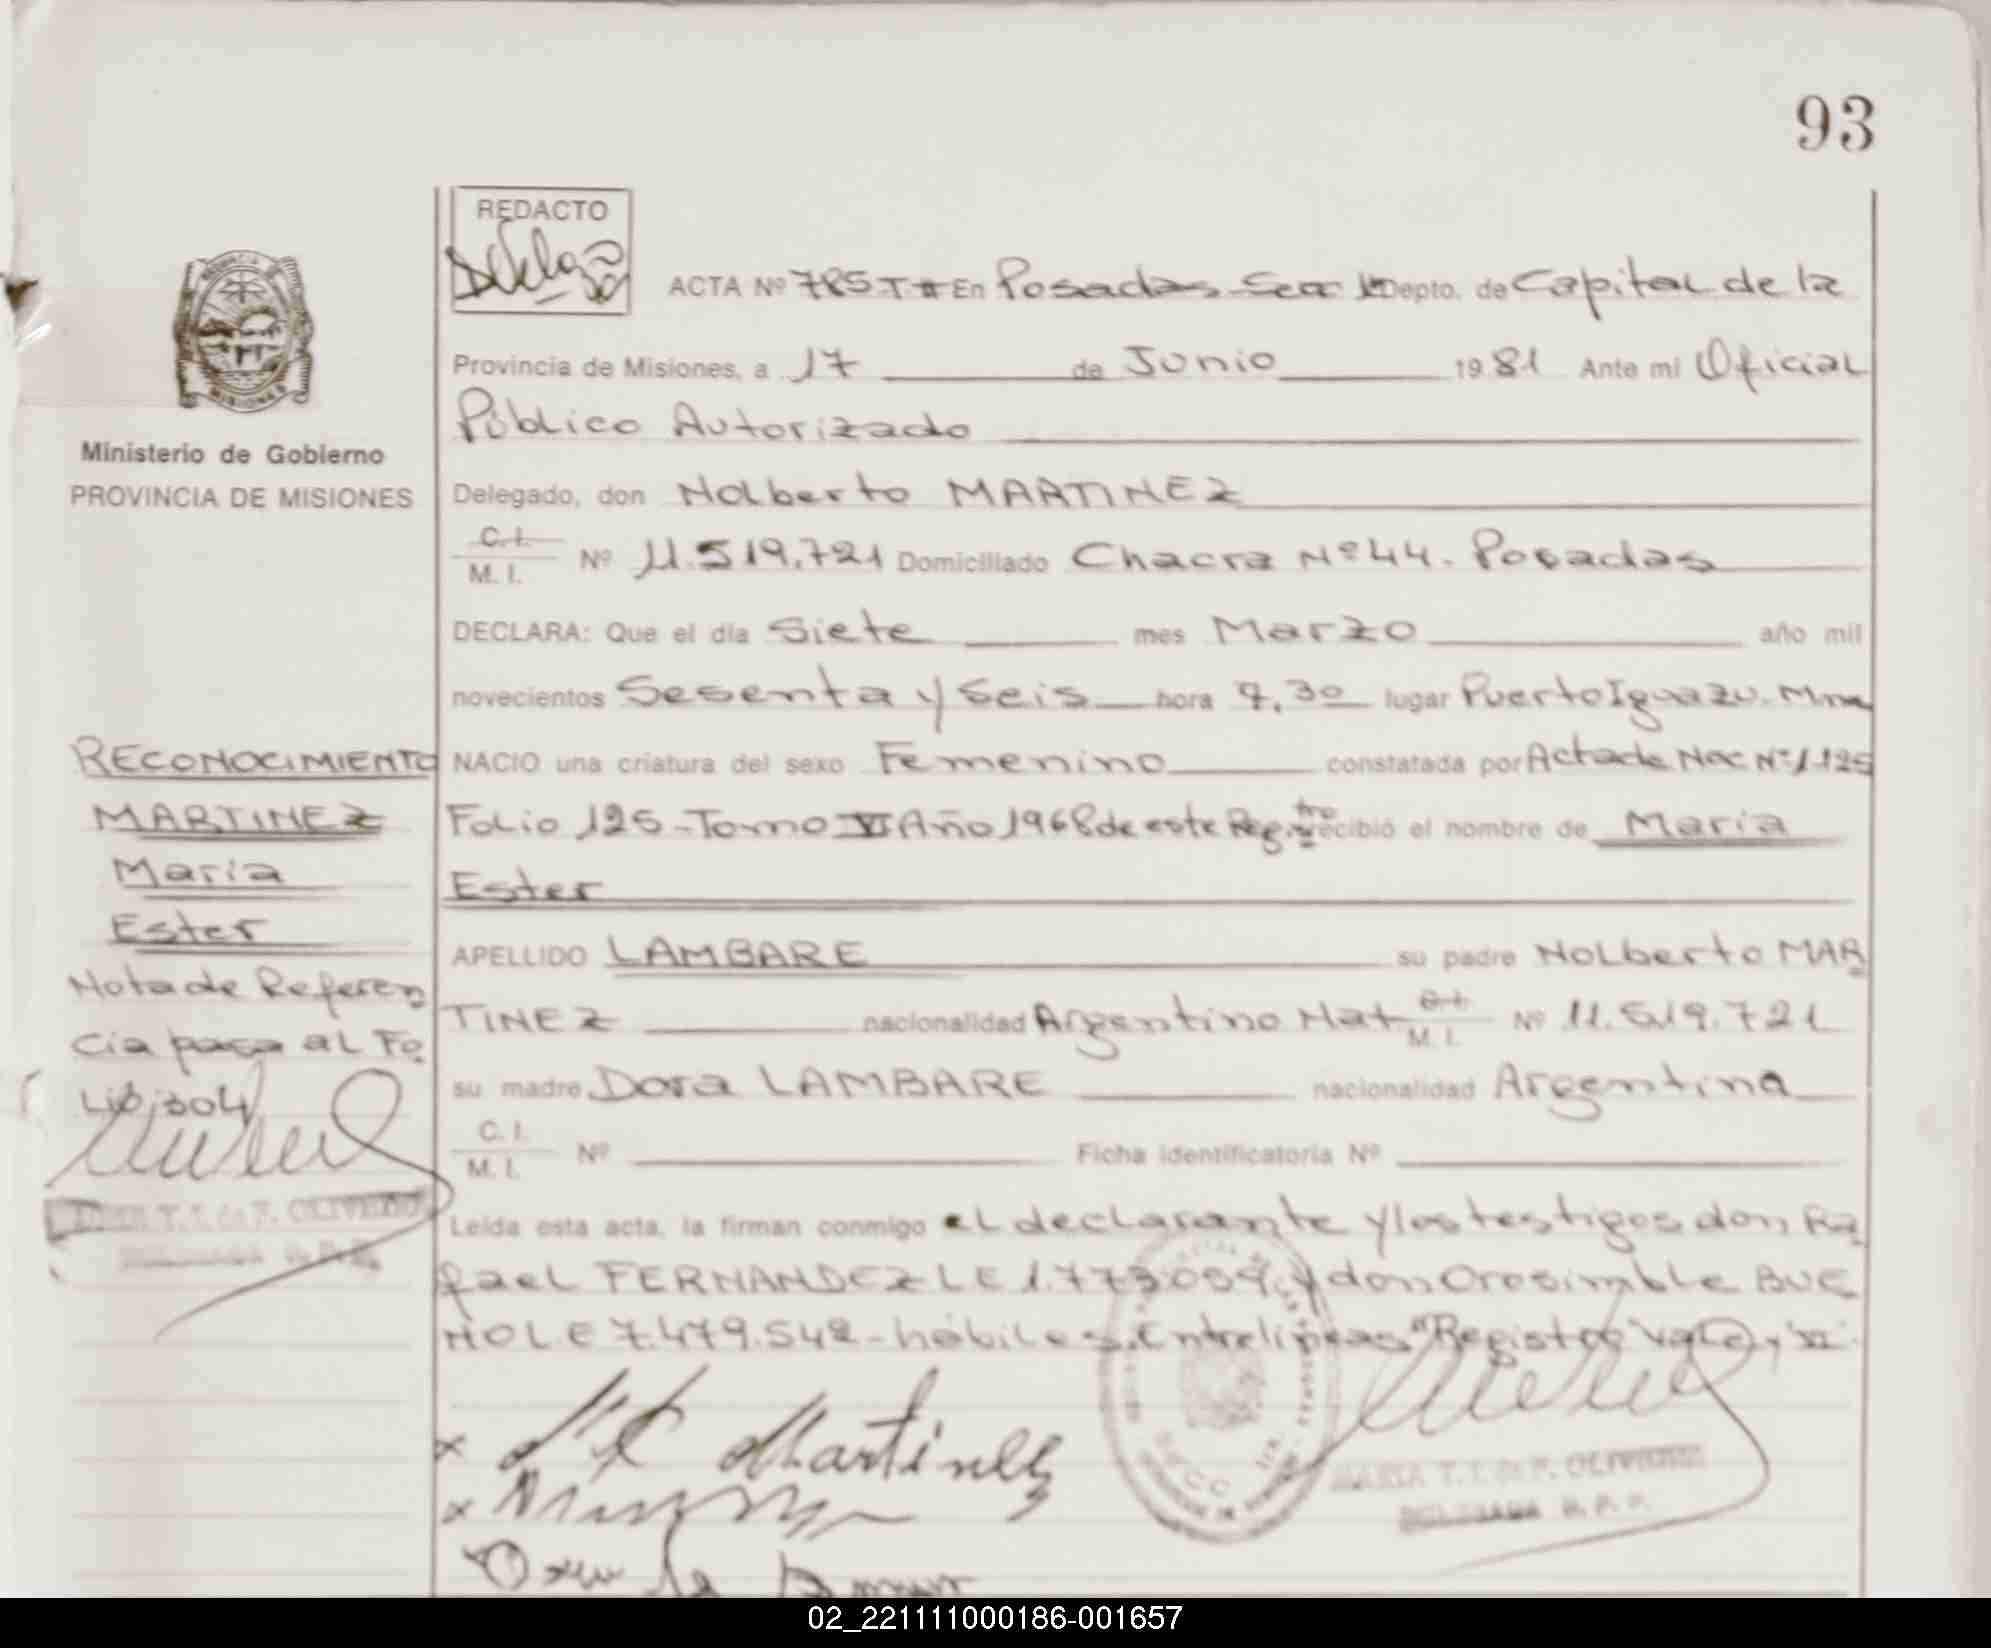 93
REDACTO
ACTA Nº 785 T II En Posadas Sec 1ª Depto. de Capital de la
Provincia de Misiones, a 17 de Junio 1981 Ante mi Oficial
Público Autorizado
Ministerio de Gobierno
PROVINCIA DE MISIONES
Delegado, don Nolberto MARTINEZ
C.I.
M. I. Nº 11.519.721 Domiciliado Chacra Nº 44. Posadas
DECLARA: Que el día Siete mes Marzo año mil
novecientos Sesenta y Seis hora 7,30 lugar Puerto Iguazu. Mnes
RECONOCIMIENTO
MARTINEZ
Maria
Ester
Nota de Referen
cia pasa al Fo
Lio 304
NACIO una criatura del sexo Femenino constatada por Acta de Nac Nº 1125
Folio 125 - Tomo VI Año 1968 de este Regis tro recibió el nombre de Maria
Ester
APELLIDO LAMBARE su padre Nolberto MAR
TINEZ nacionalidad Argentino Nat C.I. M. I. Nº 11.519.721
su madre Dora LAMBARE nacionalidad Argentina
C. I.
M. I. Nº Ficha identificatoria Nº
Leída esta acta, la firman conmigo el declarante y los testigos don Ra
fael FERNANDEZ LE 1.773.059, y don Orosimble BUE
NO LE 7.479.542 - hábiles. Entrelineas "Registro" vale, "VI"
Martinez
MARIA T. I. de F. OLIVEIRA
02_221111000186-001657